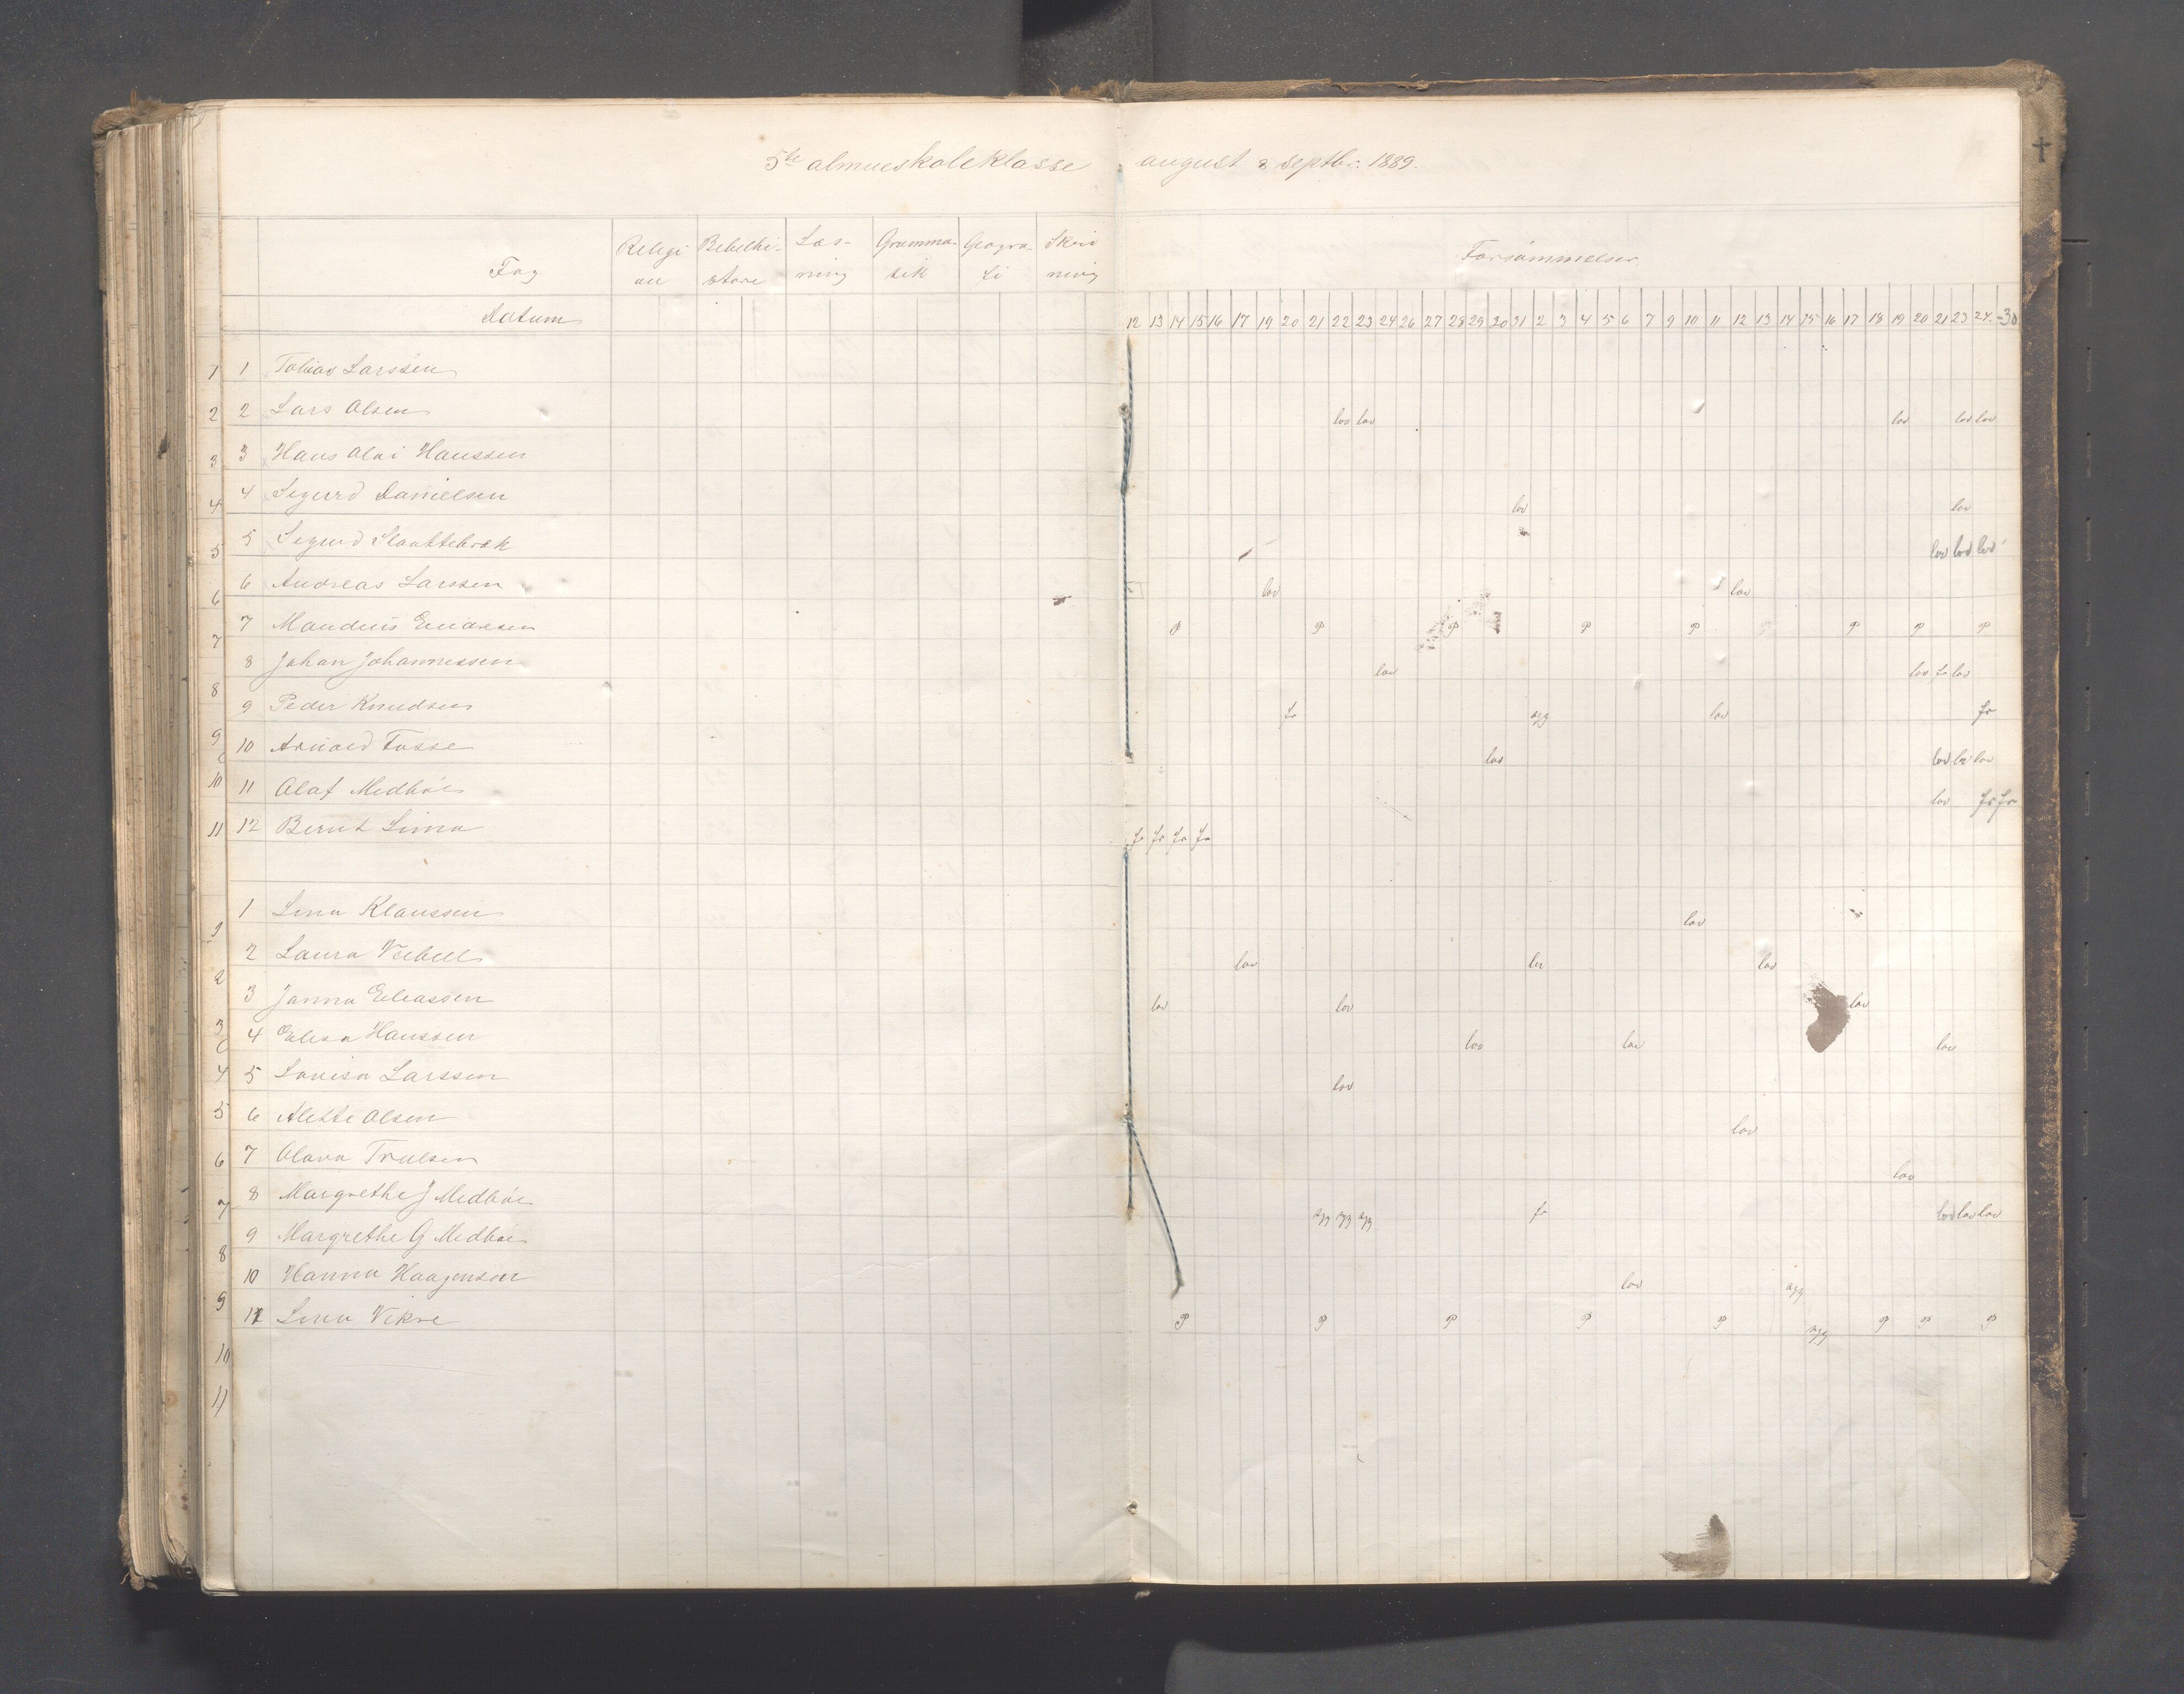 5te almueskoleklasse august & septbr. 1889.
Fag Religi on Bibelhi- storie Læs- ning Gramma- tik Geogra- fi Skriv ning Forsømmelser
Datum 12 13 14 15 16 17 19 20 21 22 23 24 26 27 28 29 30 31 2 3 4 5 6 7 9 10 11 12 13 14 15 16 17 18 19 20 21 23 24 -30
1 1 Tobias Larssen
2 2 Lars Olsen lov lov lov lov lov
3 3 Hans Olai Hanssen
4 4 Sigurd Danielsen lov lov
5 5 Sigurd Slaattebrek lov lov lov
6 6 Andreas Larssen lov lov
7 7 Mandius Einarsen P P P P P P P P
8 8 Johan Johannessen lov lov fr lov
9 9 Peder Knudsen fr syg lov fr
10 10 Arnold Fosse lov lov lov lov
11 11 Olaf Medhöe lov fr fr
12 Bernt Lima fr fr fr fr
1 1 Lina Klaussen lov
2 2 Laura Vebell lov lov lov
3 3 Janna Eliassen lov lov lov
4 4 Elisa Hanssen lov lov lov
5 5 Lovisa Larssen lov
6 6 Alette Olsen lov
7 7 Olava Trulsen lov
8 8 Margrethe J Medhöe syg syg syg fr lov lov lov
9 9 Margrethe G Medhöe
10 10 Hanna Haagensen lov syg
11 11 Lina Vikre P P P P P syg P P P